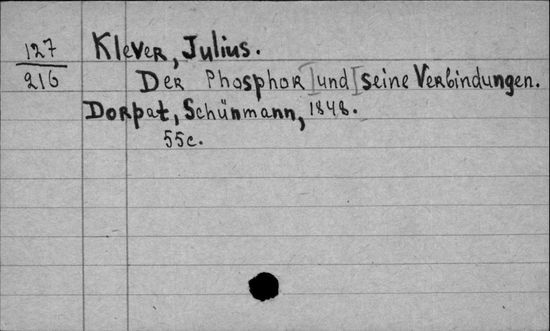 127
216
Klever, Julius.
Der Phosphor [und] seine Verbindungen.
Dorpat, Schünmann, 1848.
55c.